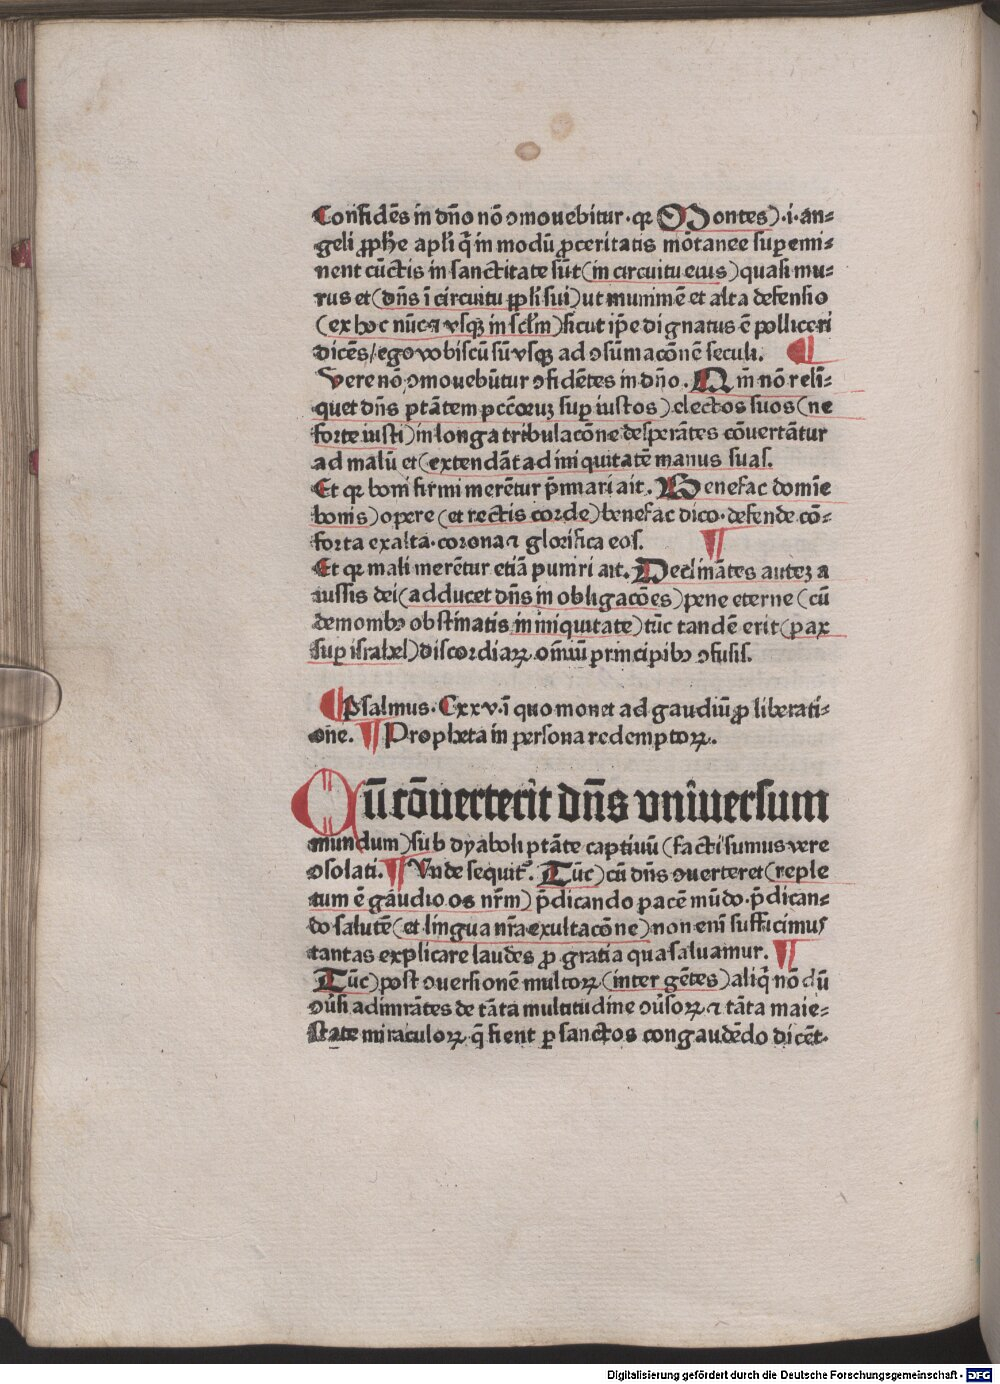 Confidẽs in dño nõ ɔmouebitur· qꝛ Montes).i. an⸗
geli ꝓphe apłi q̃ in modũ ꝓceritatis mõtanee suꝑemi⸗
nent cũctis in sanctitate sũt (in circuitu eius) quasi mu⸗
rus et (dñs ĩ circuitu ꝓpłi sui) ut munimẽ et alta defensio
(ex hoc nũc ⁊ vsqꝫ in scłm) sicut ip̃e dignatus ẽ polliceri
dicẽs / ego vobiscũ sũ vsqꝫ ad ɔsũmacõnẽ seculi. ¶
Vere nõ ɔmouebũtur ɔfidẽtes in dño. Qm̃ nõ relĩ⸗
quet dñs ptãtem pccõruꝫ suꝑ iustos) electos suos (ne
forte iusti) in longa tribulacõne desperãtes cõuertãtur
ad malũ et (extendãt ad iniquitatẽ manus suas.
Et qꝛ boni firmi merẽtur p̃miari ait. Benefac domĩe
bonis) opere (et rectis corde) benefac dico· defende cõ⸗
forta exalta· corona ⁊ glorifica eos. ¶
Et qꝛ mali merẽtur etiã puniri ait. Declinãtes auteꝫ a
iussis dei (adducet dñs in obligacões) pene eterne (cũ
demonibꝰ obstinatis in iniquitate) tũc tandẽ erit (pax
suꝑ israhel) discordiaꝝ oĩm̃ principibꝰ ɔfusis.
¶ Psalmus· Cxxv· ĩ quo monet ad gaudiũ ꝓ liberati⸗
one. ¶ Propheta in persona redemptoꝝ.
Cũ cõuerterit dñs vniuersum
mundum) sub dyaboli ptãte captiuũ (facti sumus vere
ɔsolati. ¶ Vnde sequit᷑. Tũc) cũ dñs ɔuerteret (reple
tum ẽ gaudio os nr̃m) p̃dicando pacẽ mũdo· p̃dican⸗
do salutẽ (et lingua nr̃a exultacõne) non eni sufficimus
tantas explicare laudes ꝓ gratia qua saluamur. ¶
Tũc) post ɔuersionẽ multoꝝ (inter gẽtes) aliq̃ nõdũ
ɔũsi admirãtes de tãta multitudine ɔũsoꝝ ⁊ tãta maie⸗
state miraculoꝝ q̃ fient ꝑ sanctos congaudẽdo dicẽt·
Digitalisierung gefördert durch die Deutsche Forschungsgemeinschaft - DFG